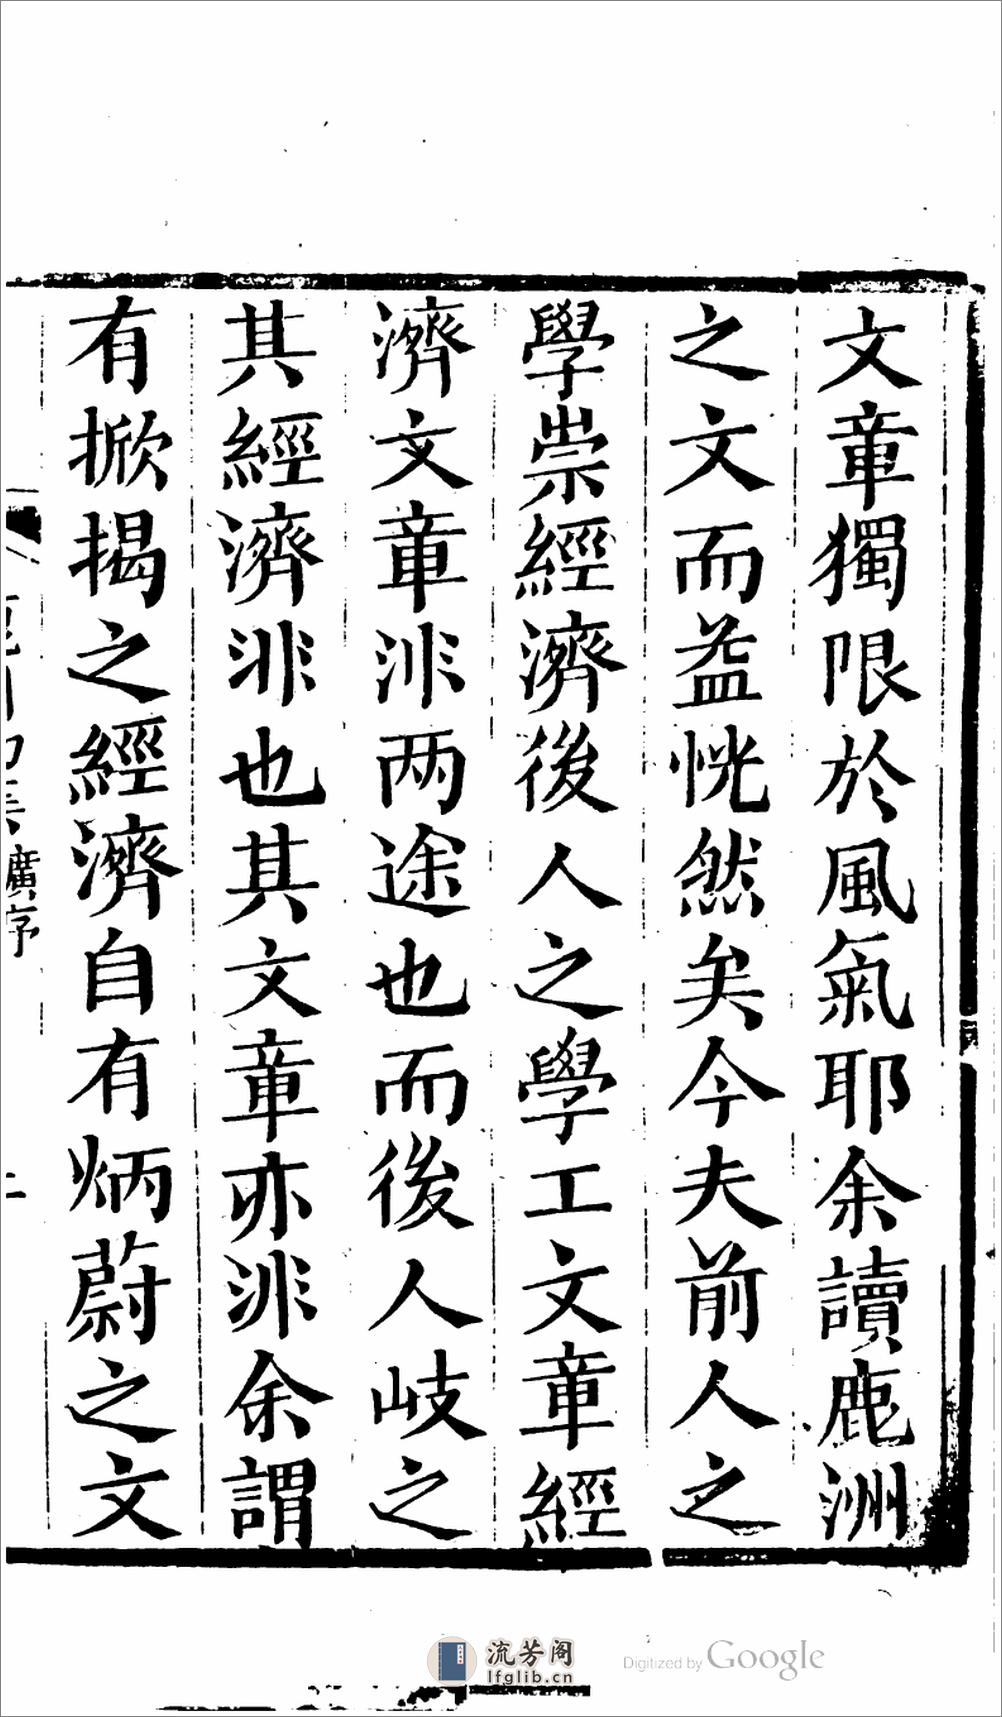 文章獨限於風氣耶余讀鹿洲
之文而益恍然矣今夫前人之
學崇經濟後人之學工文章經
濟文章非两途也而後人岐之
其經濟非也其文章亦非余謂
有掀揭之經濟自有炳蔚之文
初集廣序
流芳阁
lfglib.cn
Digitized by Google